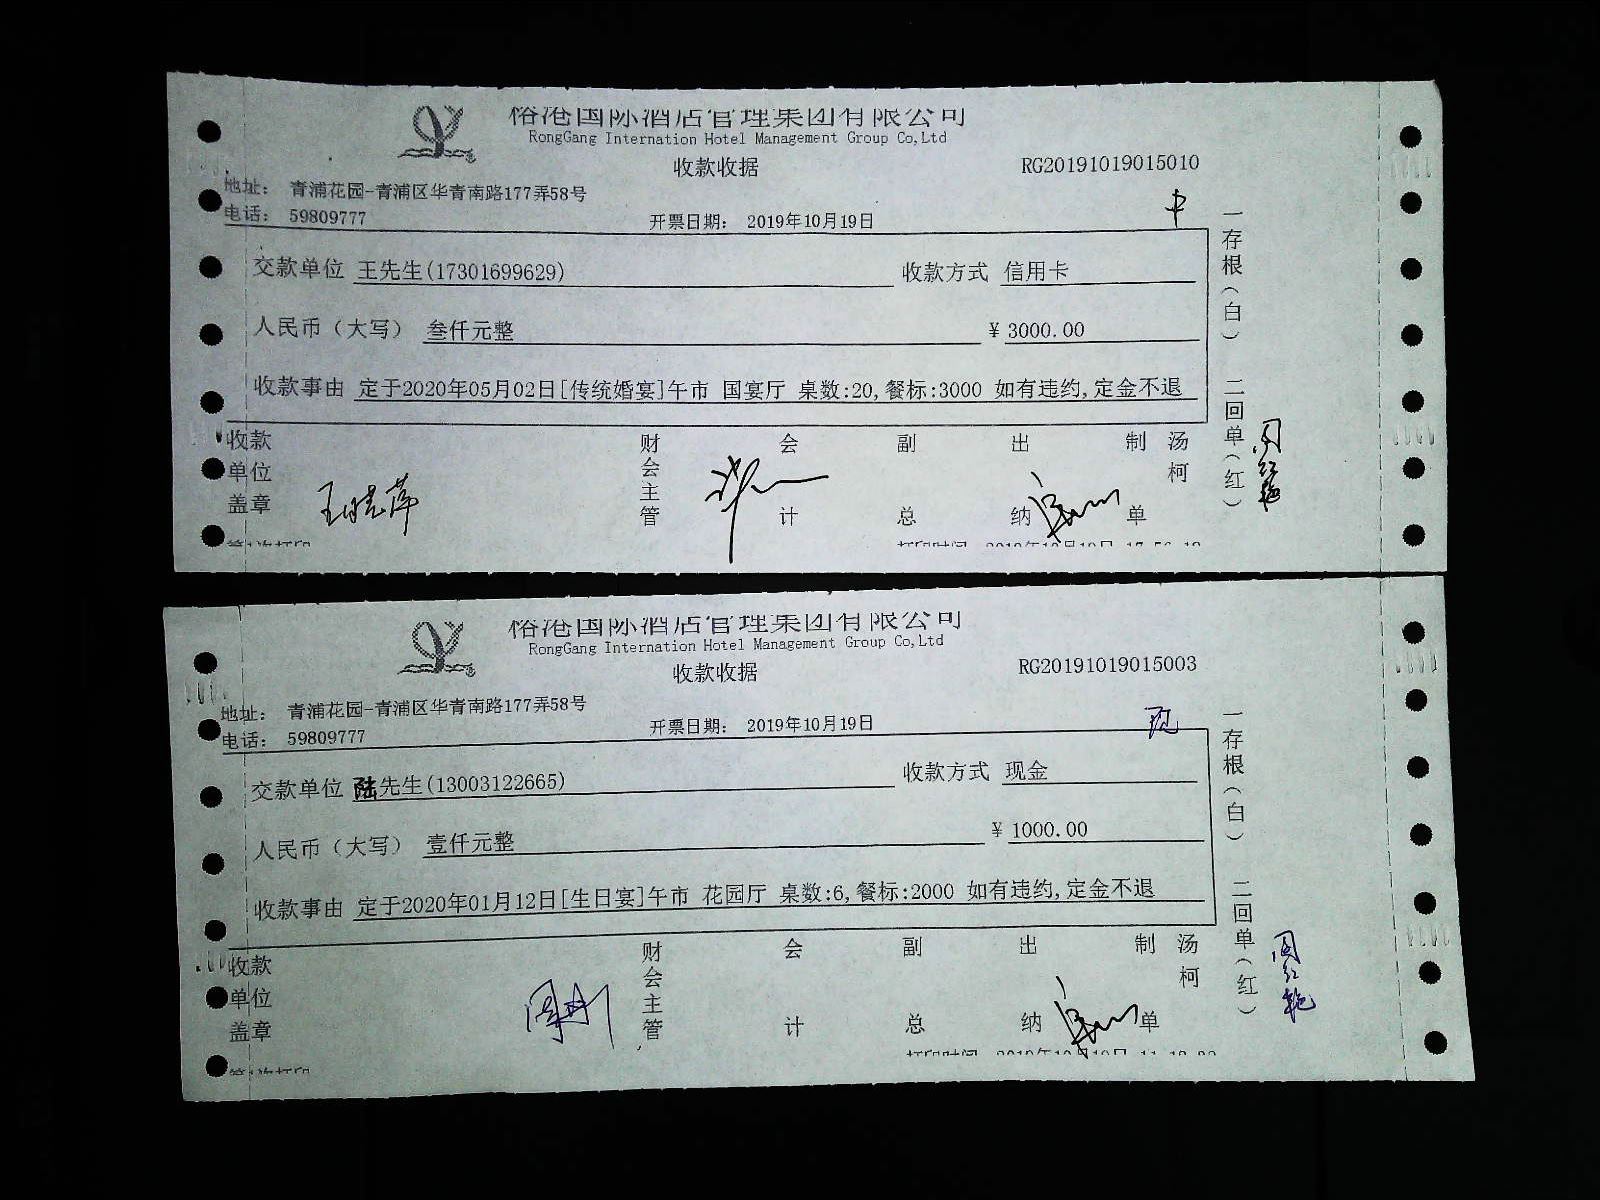 裕港国际酒店管理集团有限公司
RongGang Internation Hotel Management Group Co,Ltd
收款收据 RG20191019015010
地址： 青浦花园-青浦区华青南路177弄58号
电话： 59809777 开票日期： 2019年10月19日
交款单位 王先生(17301699629) 收款方式 信用卡
人民币（大写） 叁仟元整 ¥ 3000.00
收款事由 定于2020年05月02日[传统婚宴]午市 国宴厅 桌数:20,餐标:3000 如有违约,定金不退
一存根（白） 二回单（红）
收款单位盖章 财会主管 会计 副总 出纳 制单 汤柯
第1次打印 打印时间 2019年10月19日
裕港国际酒店管理集团有限公司
RongGang Internation Hotel Management Group Co,Ltd
收款收据 RG20191019015003
地址： 青浦花园-青浦区华青南路177弄58号
电话： 59809777 开票日期： 2019年10月19日
现
交款单位 陆先生(13003122665) 收款方式 现金
人民币（大写） 壹仟元整 ¥ 1000.00
收款事由 定于2020年01月12日[生日宴]午市 花园厅 桌数:6,餐标:2000 如有违约,定金不退
一存根（白） 二回单（红）
收款单位盖章 财会主管 会计 副总 出纳 制单 汤柯
第1次打印 打印时间 2019年10月19日